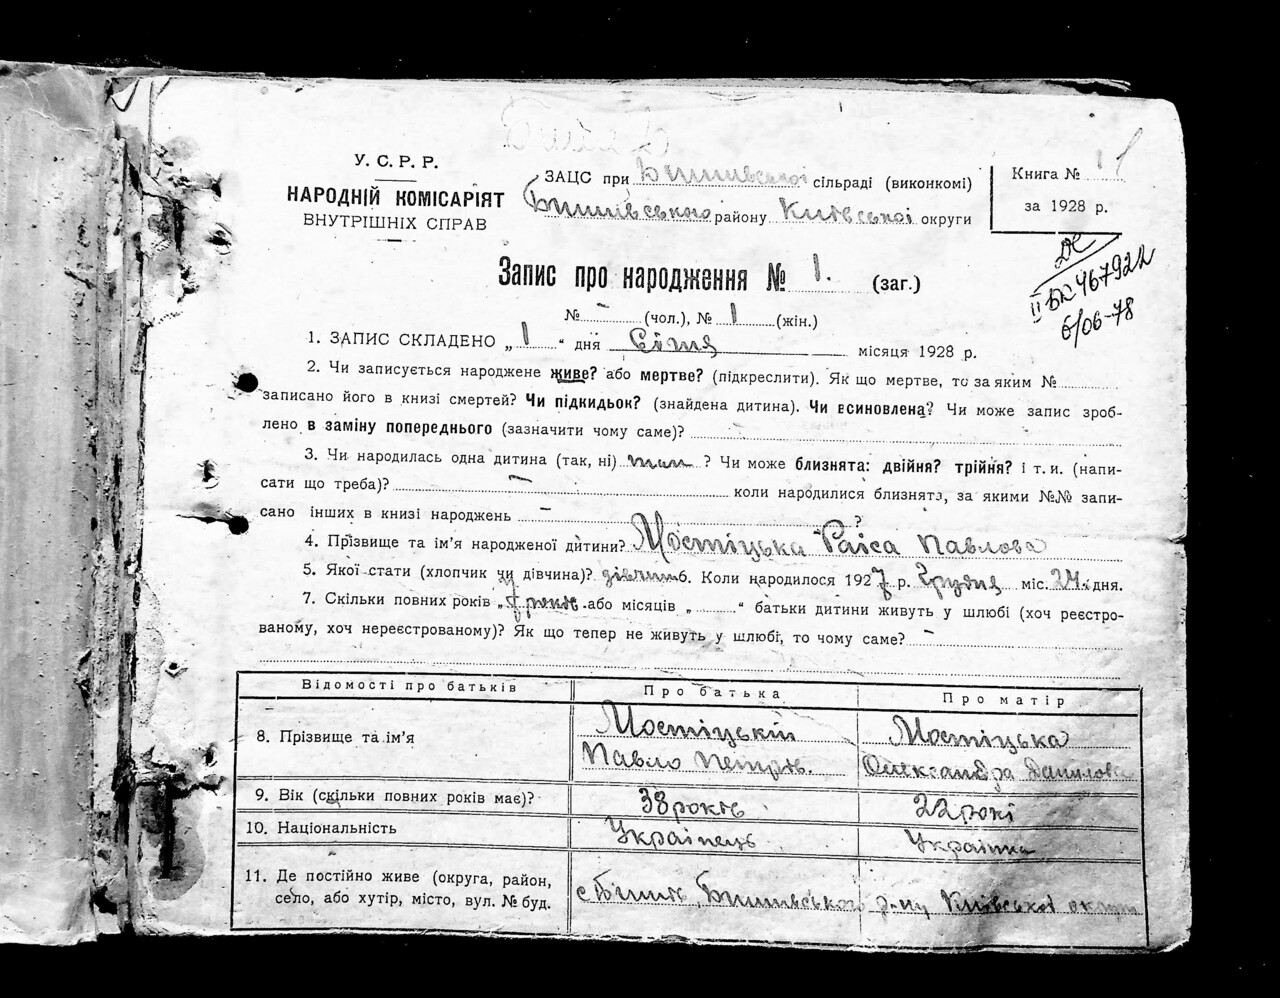 У. С. Р. Р.
НАРОДНІЙ КОМІСАРІЯТ
ВНУТРІШНІХ СПРАВ
ЗАЦС при Бишівської сільраді (виконкомі)
Бишівського району Київської округи
Книга №
за 1928 р.
467922
6/06-78
Запис про народження № 1. (заг.)
№ – (чол.), № 1 (жін.)
1. ЗАПИС СКЛАДЕНО „ 1 “ дня Січня місяця 1928 р.
2. Чи записується народжене живе? або мертве? (підкреслити). Як що мертве, то за яким №
записано його в книзі смертей? Чи підкидьок? (знайдена дитина). Чи всиновлена? Чи може запис зроб-
лено в заміну попереднього (зазначити чому саме)?
3. Чи народилась одна дитина (так, ні) так ? Чи може близнята: двійня? трійня? і т. и. (напи-
сати що треба)? – коли народилися близнята, за якими №№ запи-
сано інших в книзі народжень – ?
4. Прізвище та ім’я народженої дитини? Мостіцька Раіса Павлова
5. Якої стати (хлопчик чи дівчина)? дівчин 6. Коли народилося 1927 р. Грудня міс. 24 дня.
7. Скільки повних років „ років або місяців „ “ батьки дитини живуть у шлюбі (хоч реєстро-
ваному, хоч нереєстрованому)? Як що тепер не живуть у шлюбі, то чому саме? –
Відомості про батьків Про батька Про матір
8. Прізвище та ім’я Мостіцький Мостіцька
Павло Петрів. Олександра Данилова
9. Вік (скільки повних років має)? 38 років 22 рокі
10. Національність Украінець Украінка
11. Де постійно живе (округа, район,
село, або хутір, місто, вул. № буд. с Бишів, Бишівського р-ну Київської округи